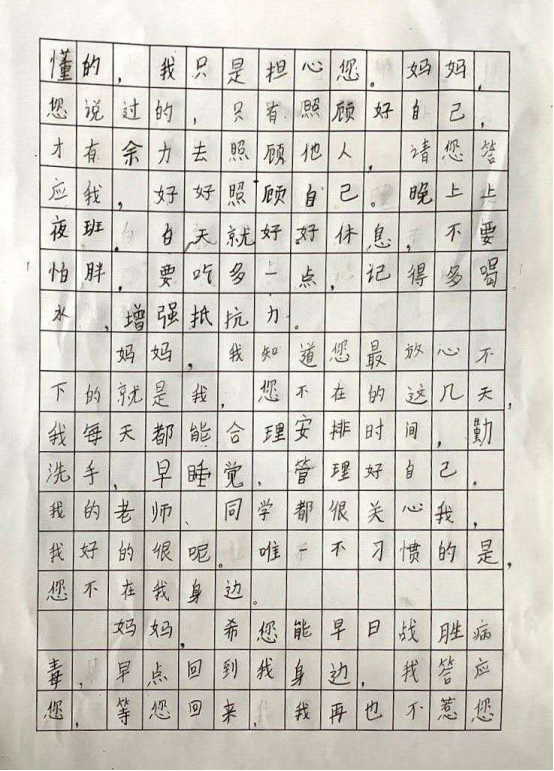 懂的，我只是担心您。妈妈，
您说过的，只有照顾好自己，
才有余力去照顾他人，请您答
应我，好好照顾自己。晚上上
夜班，白天就好好休息，不要
怕胖，要吃多一点，记得多喝
水，增强抵抗力。
妈妈，我知道您最放心不
下的就是我，您不在的这几天，
我每天都能合理安排时间，勤
洗手，早睡觉，管理好自己。
我的老师、同学都很关心我，
我好的很呢。唯一不习惯的是，
您不在我身边。
妈妈，希您能早日战胜病
毒，早点回到我身边，我答应
您，等您回来，我再也不惹您